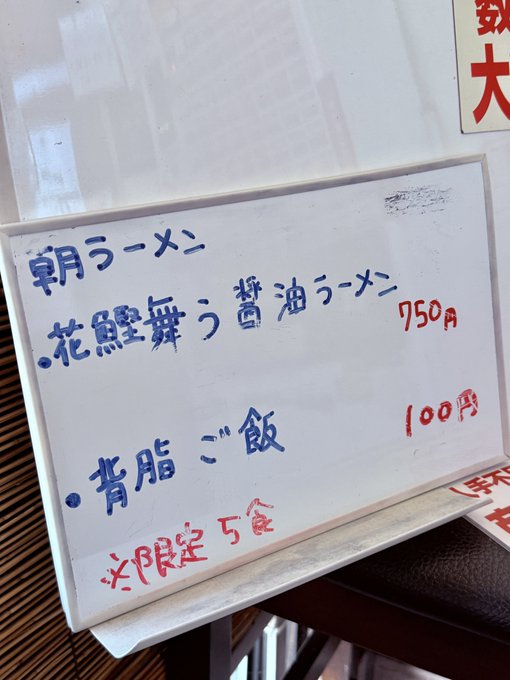 数
大
朝ラーメン
・花鰹舞う醤油ラーメン 750円
・背脂ご飯 100円
※限定5食